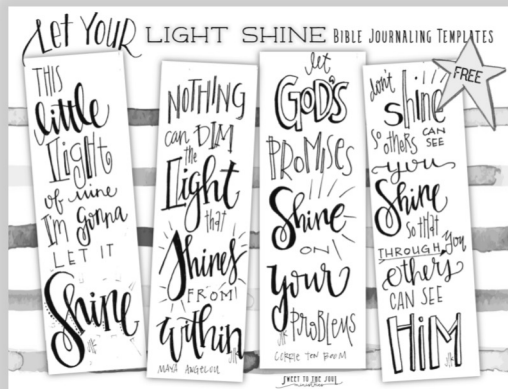 Let Your LIGHT SHINE BIBLE JOURNALING TEMPLATES
FREE
THIS
little
light
of mine
I'm gonna
LET IT
Shine
NOTHING
can DIM
the
Light
that
Shines
FROM
within
MAYA ANGELOU
let
GOD'S
PROMISES
Shine
ON
your
PROBLEMS
CORRIE TEN BOOM
don't shine
so others CAN
SEE
you
Shine
so that
THROUGH you
others
CAN SEE
HIM
SWEET TO THE SOUL